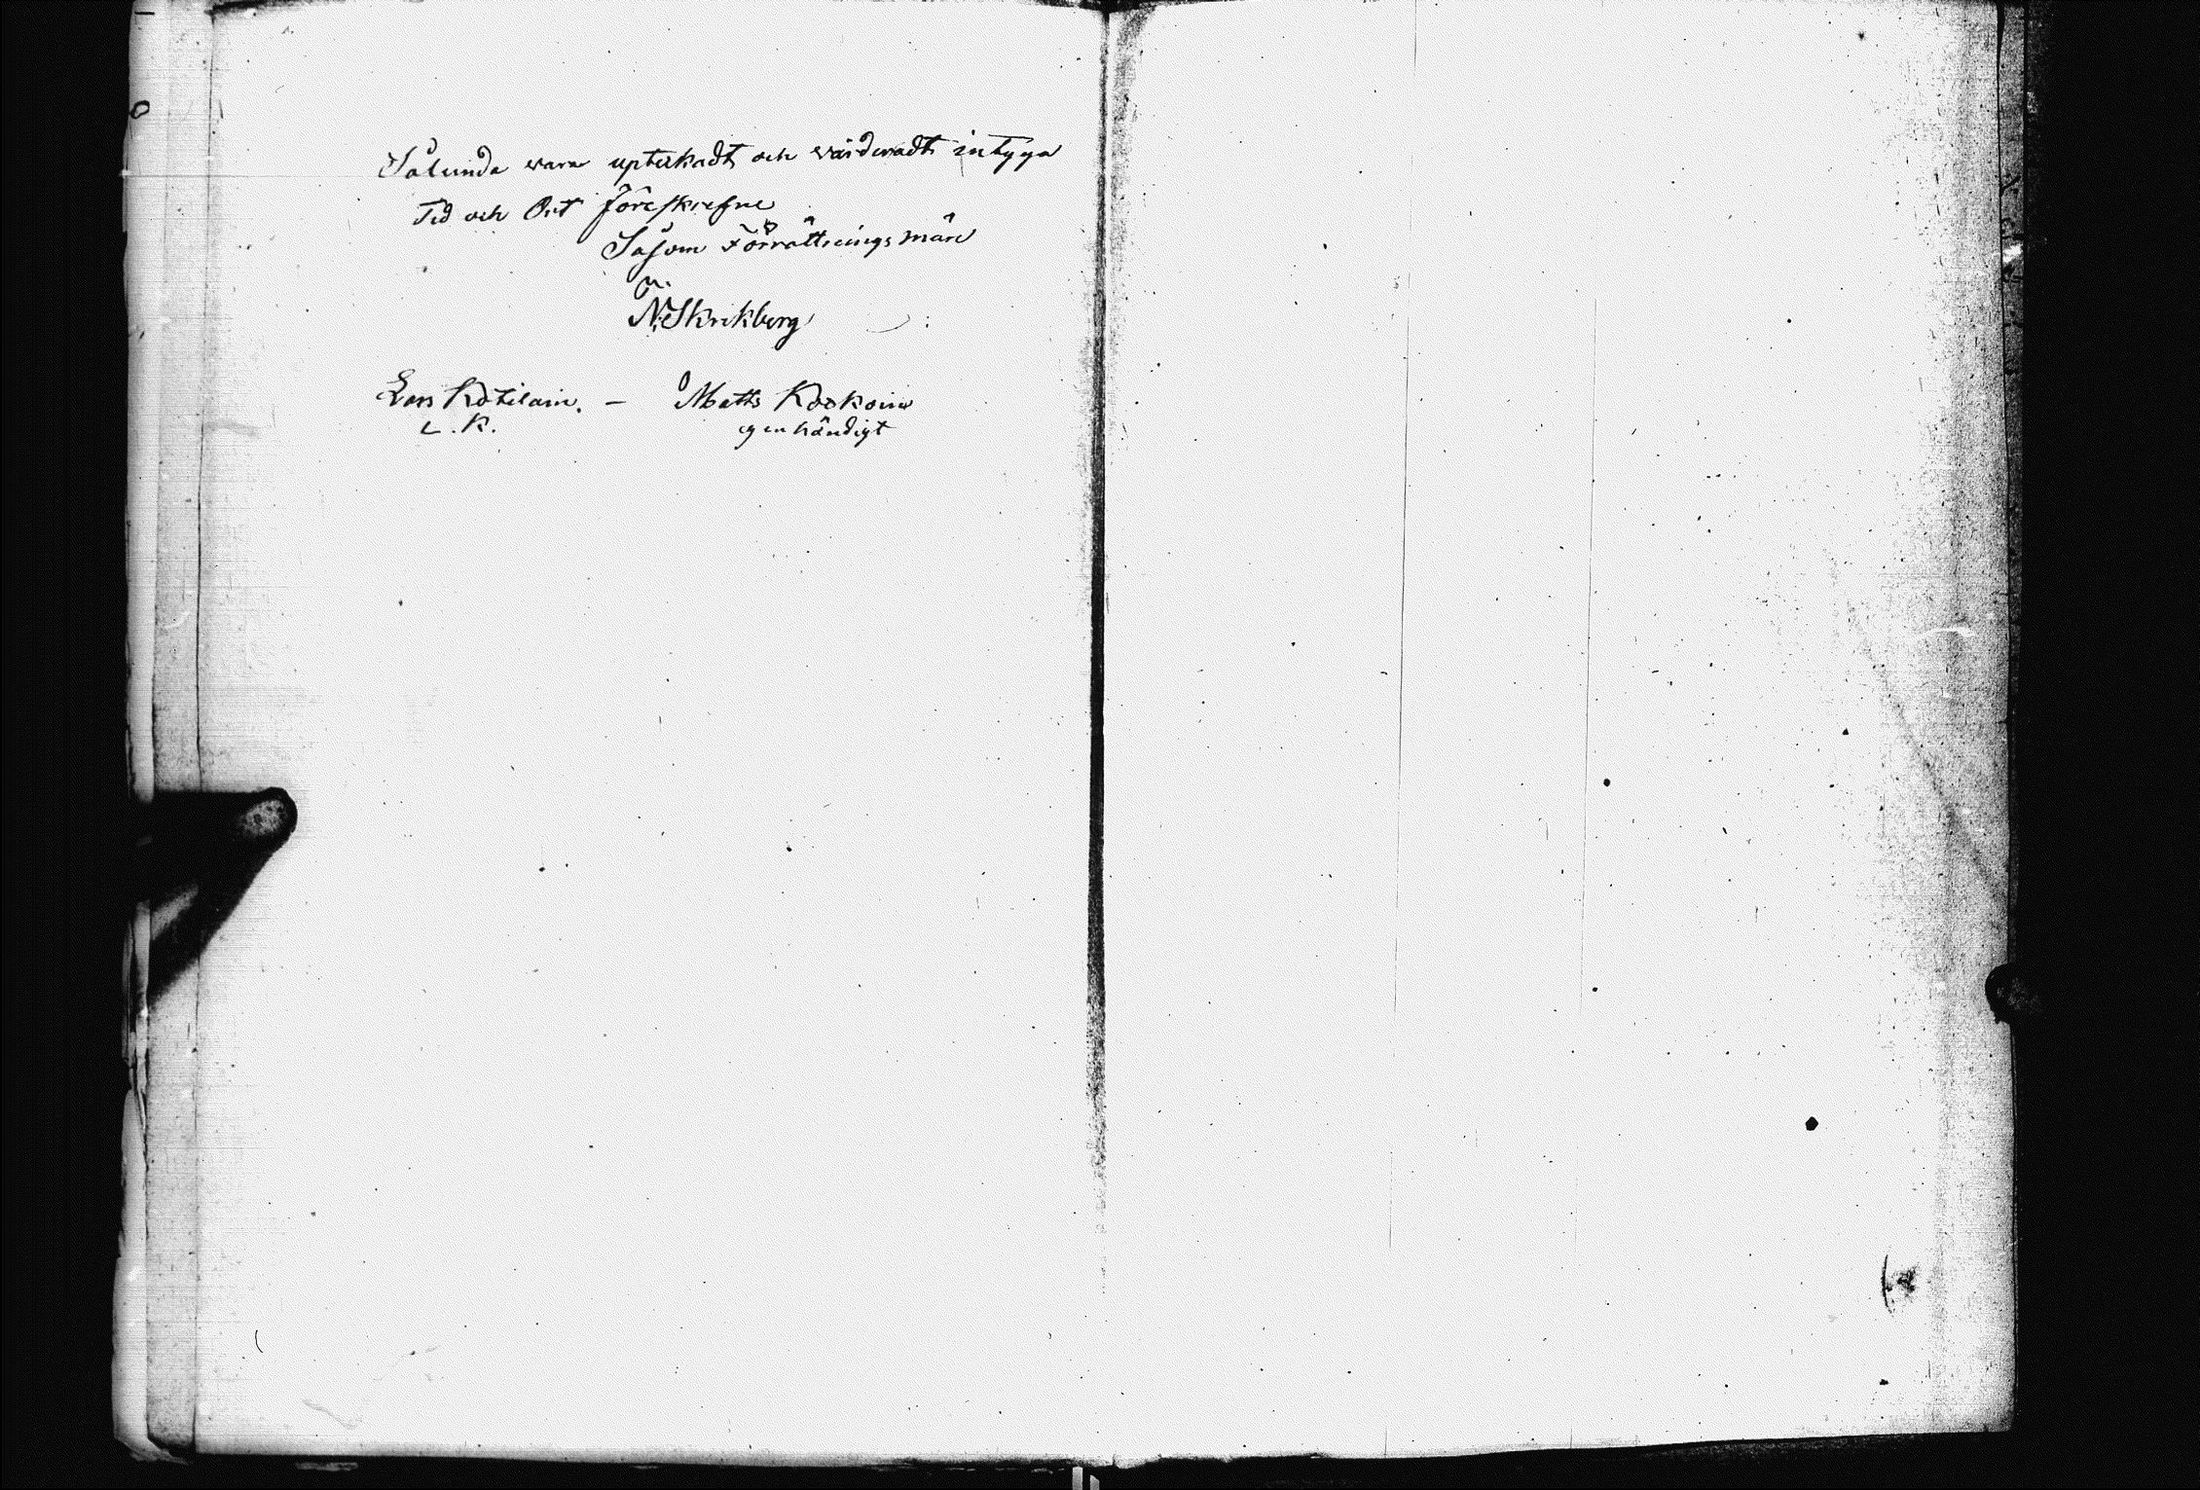 Sålunda vara upteknadt och värderadt intyga
Tid och Ort föreskrefne
Såsom Förrättningsmän
N: Skrikberg
Lars Kotilain. — Matts Kockoin
L. K. egenhändigt